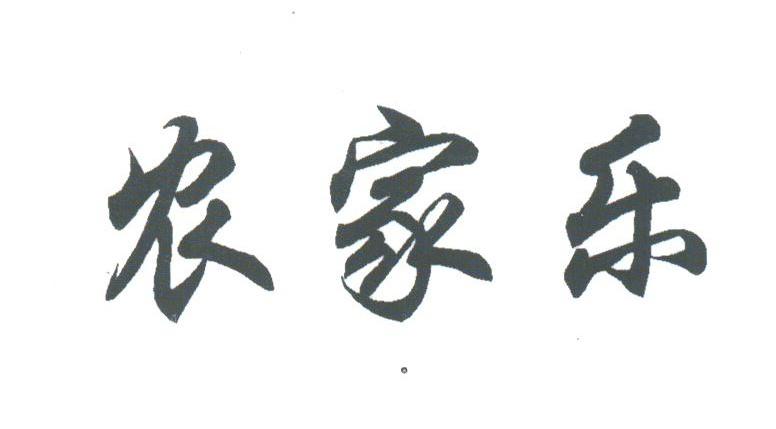 农家乐